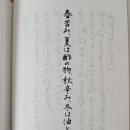 春苦み、夏は酢の物、秋辛み、冬は油と